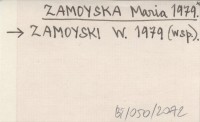 ZAMOYSKA Maria 1979.
→ ZAMOYSKI W. 1979 (wsp).
BZ/050/2042